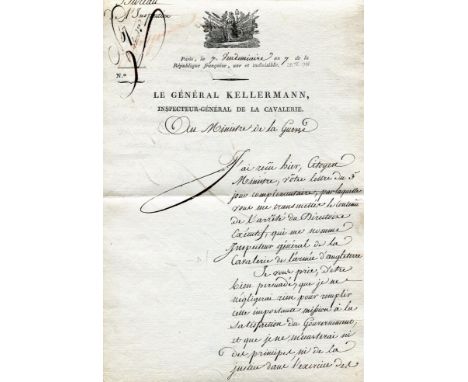 Bureau
d'Inspection
N.º
Paris, le 7 Vendémiaire an 7 de la
République française, une et indivisible.
LE GÉNÉRAL KELLERMANN,
INSPECTEUR-GÉNÉRAL DE LA CAVALERIE.
Au Ministre de la Guerre
J'ai reçu hier, Citoyen
Ministre, votre lettre du 3e
jour complementaire, par laquelle
vous me transmettez le contenu
de l'arrêté du Directoire
Exécutif, qui me nomme
Inspecteur général de la
Cavalerie de l'armée d'angleterre
Je vous prie, d'être
bien persuadé, que je ne
négligerai rien pour remplir
cette importante mission à la
satisfaction du Gouvernement,
et que je ne m'écarterai ni
des principes, ni de la
justice dans l'exercice des